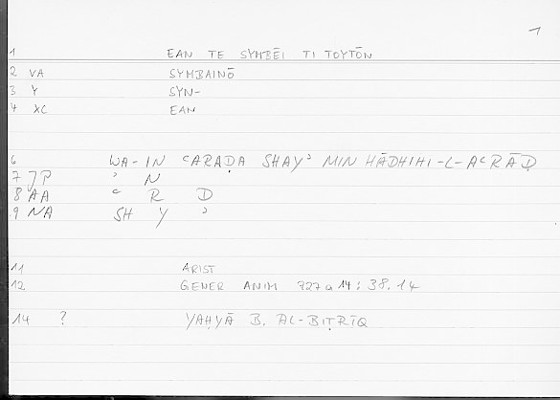 1
1 EAN TE SYMBĒI TI TOYTŌN
2 VA SYMBAINŌ
3 Y SYN-
4 XC EAN
6 WA-IN ʿARAḌA SHAYʾ MIN HĀDHIHI-L-AʿRĀḌ
7 JP ʾ N
8 AA ʿ R Ḍ
9 NA SH Y ʾ
11 ARIST
12 GENER ANIM 727a14 : 38.14
14 ? YAḤYĀ B. AL-BIṬRĪQ